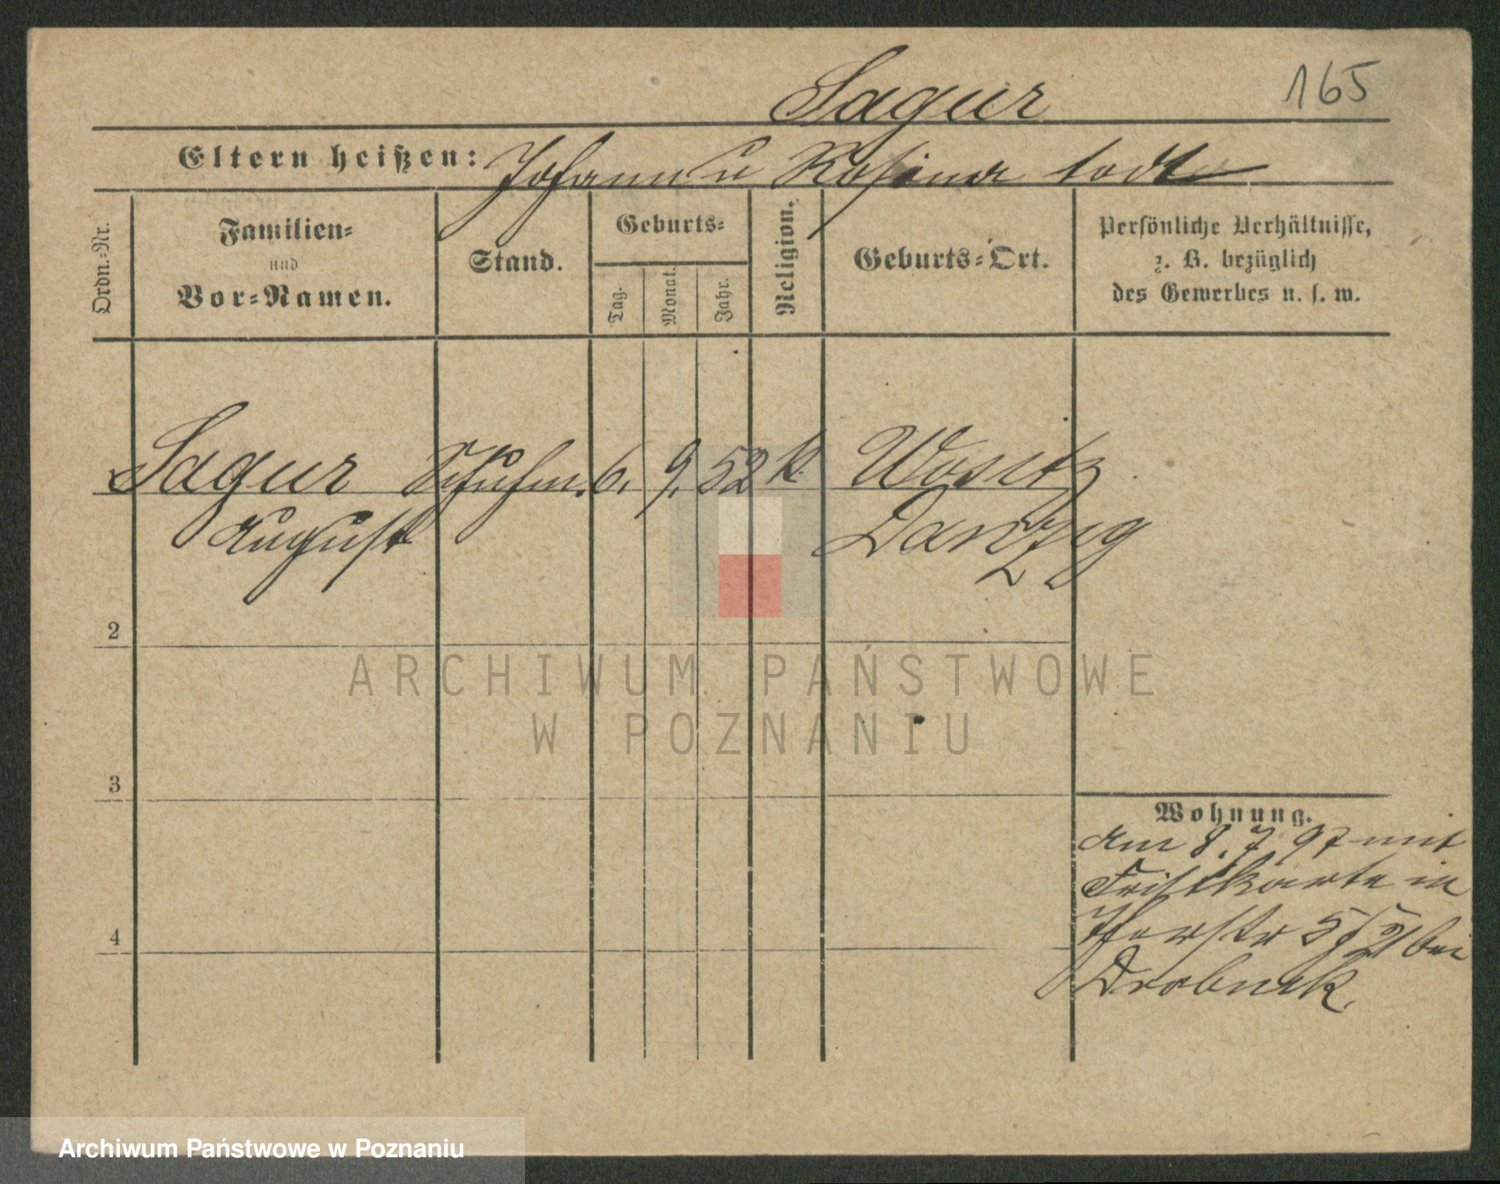 Sagur
165
Eltern heißen: Johann u Rosina todt
Ordn.-Nr.
Familien-
und
Vor-Namen.
Stand.
Geburts-
Tag.
Monat.
Jahr.
Religion.
Geburts-Ort.
Persönliche Verhältnisse,
z. B. bezüglich
des Gewerbes u. s. w.
Sagur Schuhm. 6. 9. 52 k. Wositz
August Danzig
2
ARCHIWUM PAŃSTWOWE
W POZNANIU
3
Wohnung.
am 8. 7 97 mit
Fristkarte in
5/ bei
Drobnik.
4
Archiwum Państwowe w Poznaniu